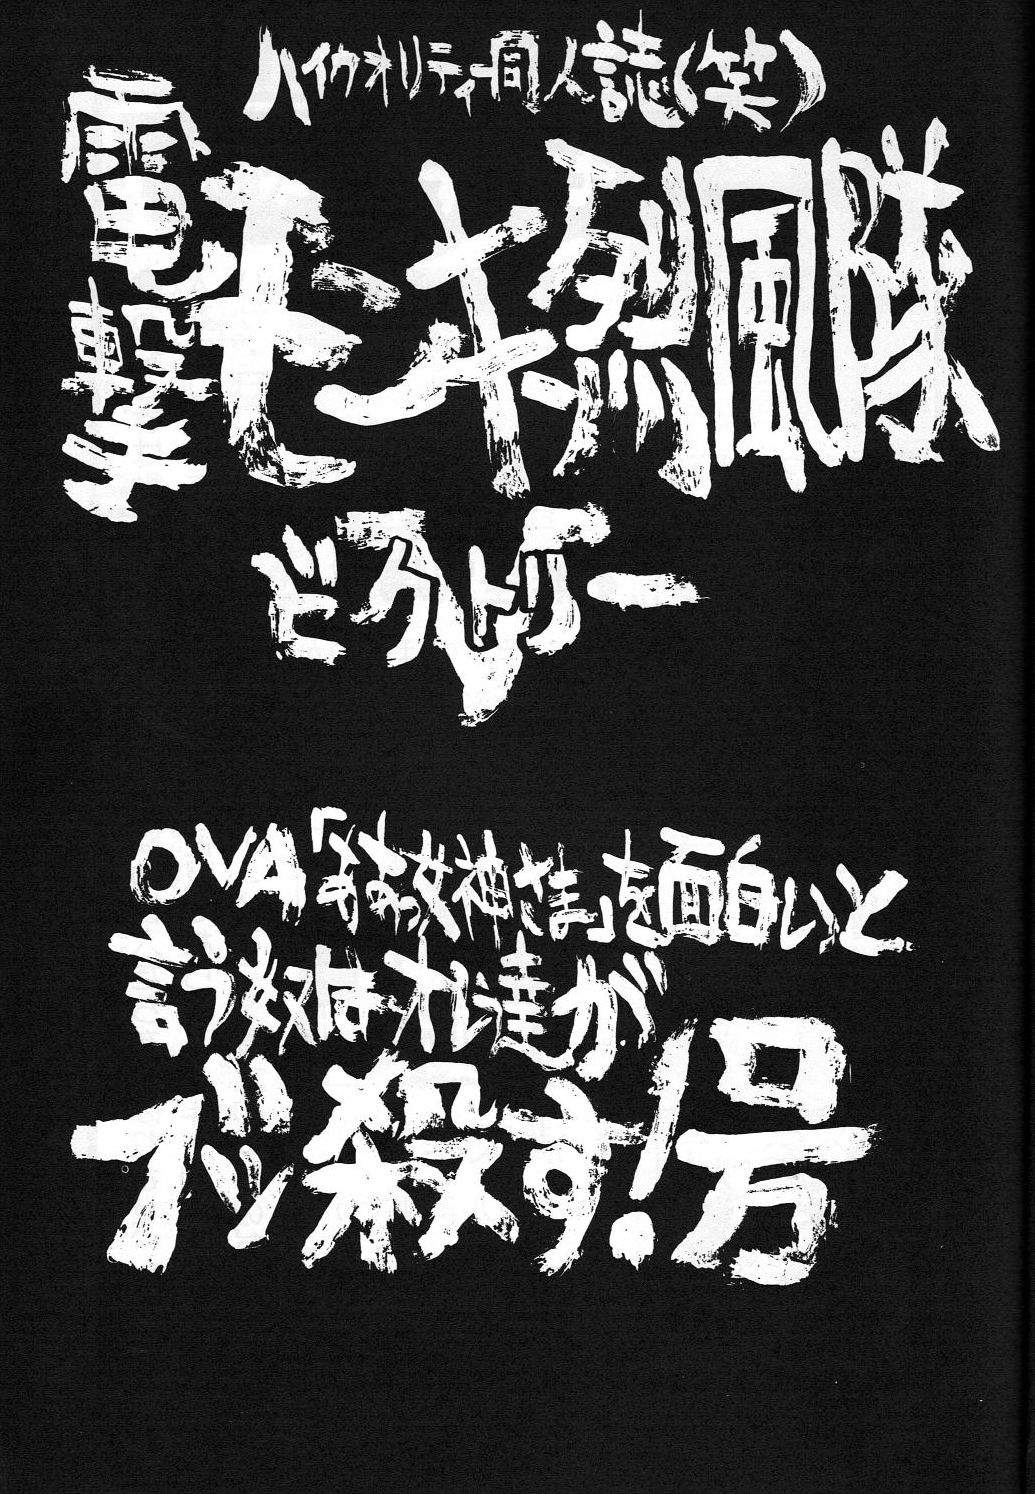 ハイクオリティー同人誌(笑)
電撃モンキー烈風隊
ビクトリー
OVA「ああっ女神さま」を面白いと
言う奴はオレ達が
ブッ殺す!号